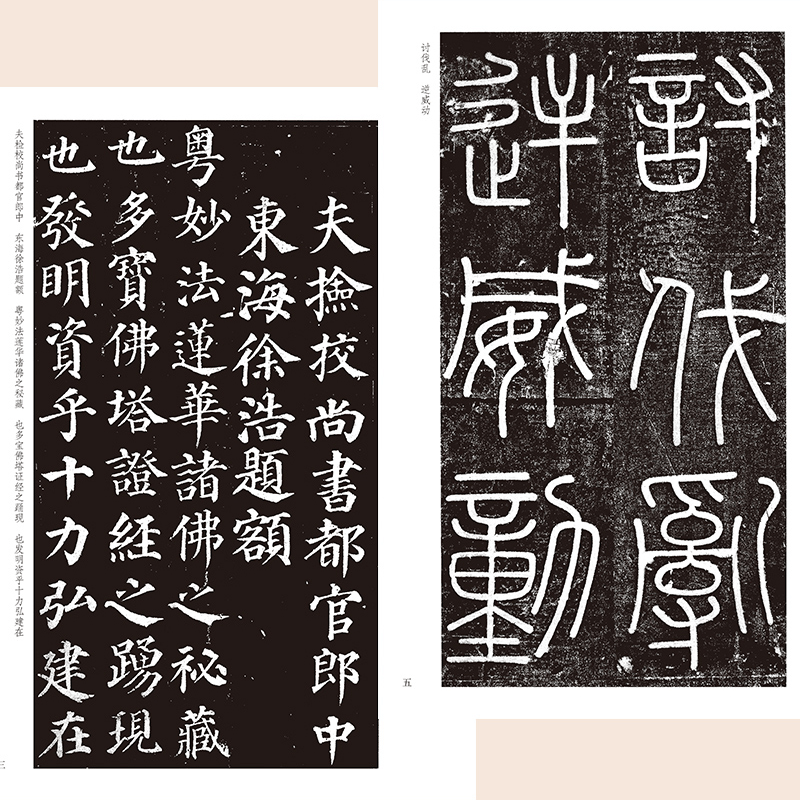 夫撿挍尚書都官郎中
東海徐浩題額
粤妙法蓮華諸佛之祕藏
也多寶佛塔證經之踴現
也發明資乎十力弘建在
夫检校尚书都官郎中 东海徐浩题额 粤妙法莲华诸佛之秘藏 也多宝佛塔证经之踊现 也发明资乎十力弘建在
三
討伐亂
逆威動
讨伐乱 逆威动
五